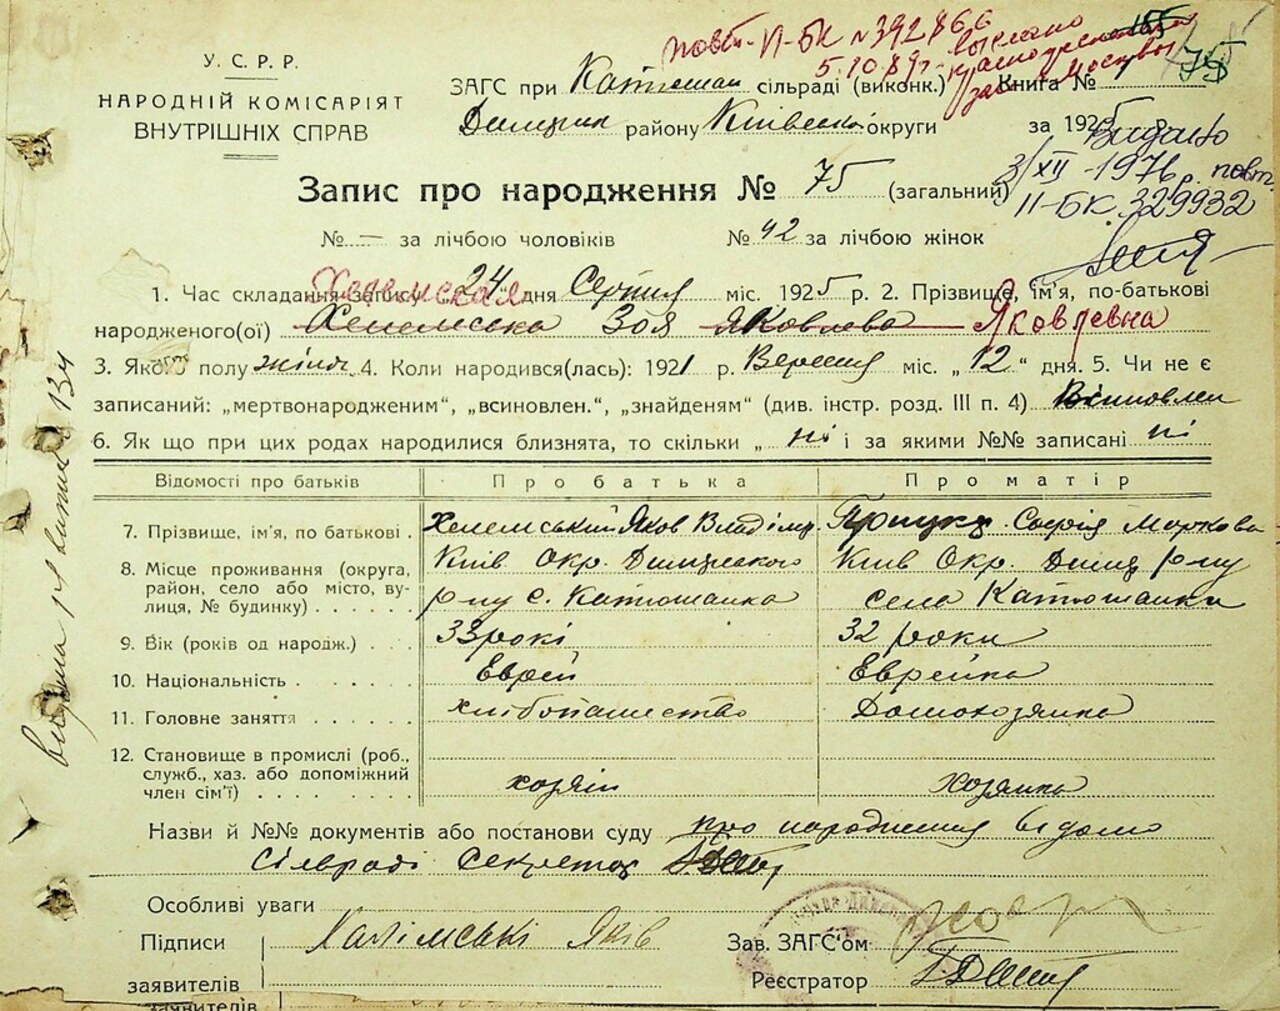 повт. II-БК №392866
5.10.89г. выслано
У. С. Р. Р.
НАРОДНІЙ КОМІСАРІЯТ
ВНУТРІШНІХ СПРАВ
ЗАГС при Катюжан сільраді (виконк.) Книга №
Димерск району Київської округи за 1925 р.
Видано
3/XII-1976 р. повт.
II-БК 329932
Запис про народження № 75 (загальний)
№ — за лічбою чоловіків № 42 за лічбою жінок
1. Час складання запису „24“ дня Серпня міс. 1925 р. 2. Прізвище, ім'я, по-батькові
Хелемская
народженого(ої) Хелемська Зоя Яковлева Яковлевна
3. Якого полу жіноч. 4. Коли народився(лась): 1921 р. Вересня міс. „12“ дня. 5. Чи не є
записаний: „мертвонародженим“, „всиновлен.“, „знайденям“ (див. інстр. розд. III п. 4)
6. Як що при цих родах народилися близнята, то скільки „ ні і за якими №№ записані ні
Відомості про батьків Про батька Про матір
7. Прізвище, ім'я, по батькові . Хелемський Яков Владімір. Софія Маркова
8. Місце проживання (округа, район, село або місто, вулиця, № будинку) . . . . . Київ Окр. Димерского Київ Окр. Димер р-ну
р-ну с. Катюжанка село Катюжанка
9. Вік (років од народж.) . . . 33 рокі 32 роки
10. Національність . . . . . . Еврей Еврейка
11. Головне заняття . . . . . . хлібопашество Домохозяйка
12. Становище в промислі (роб., служб., хаз. або допоміжний член сім'ї) . . . . . . . . хозяїн хозяйка
Назви й №№ документів або постанови суду про народження відомо
сільраді Секретар
Особливі уваги
Підписи Халімські Яків Зав. ЗАГС'ом
заявителів Реєстратор
заявителів